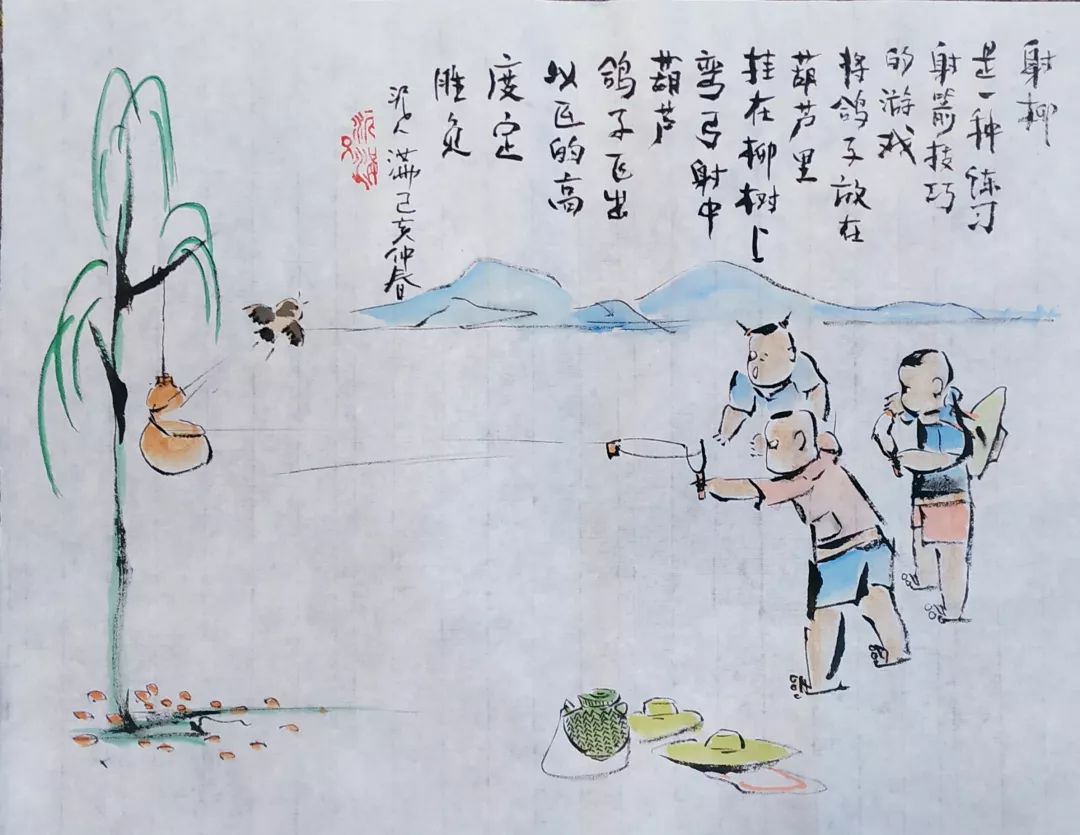 射柳
是一种练习
射箭技巧
的游戏
将鸽子放在
葫芦里
挂在柳树上
弯弓射中
葫芦
鸽子飞出
以飞的高
度定
胜负
满己亥仲春